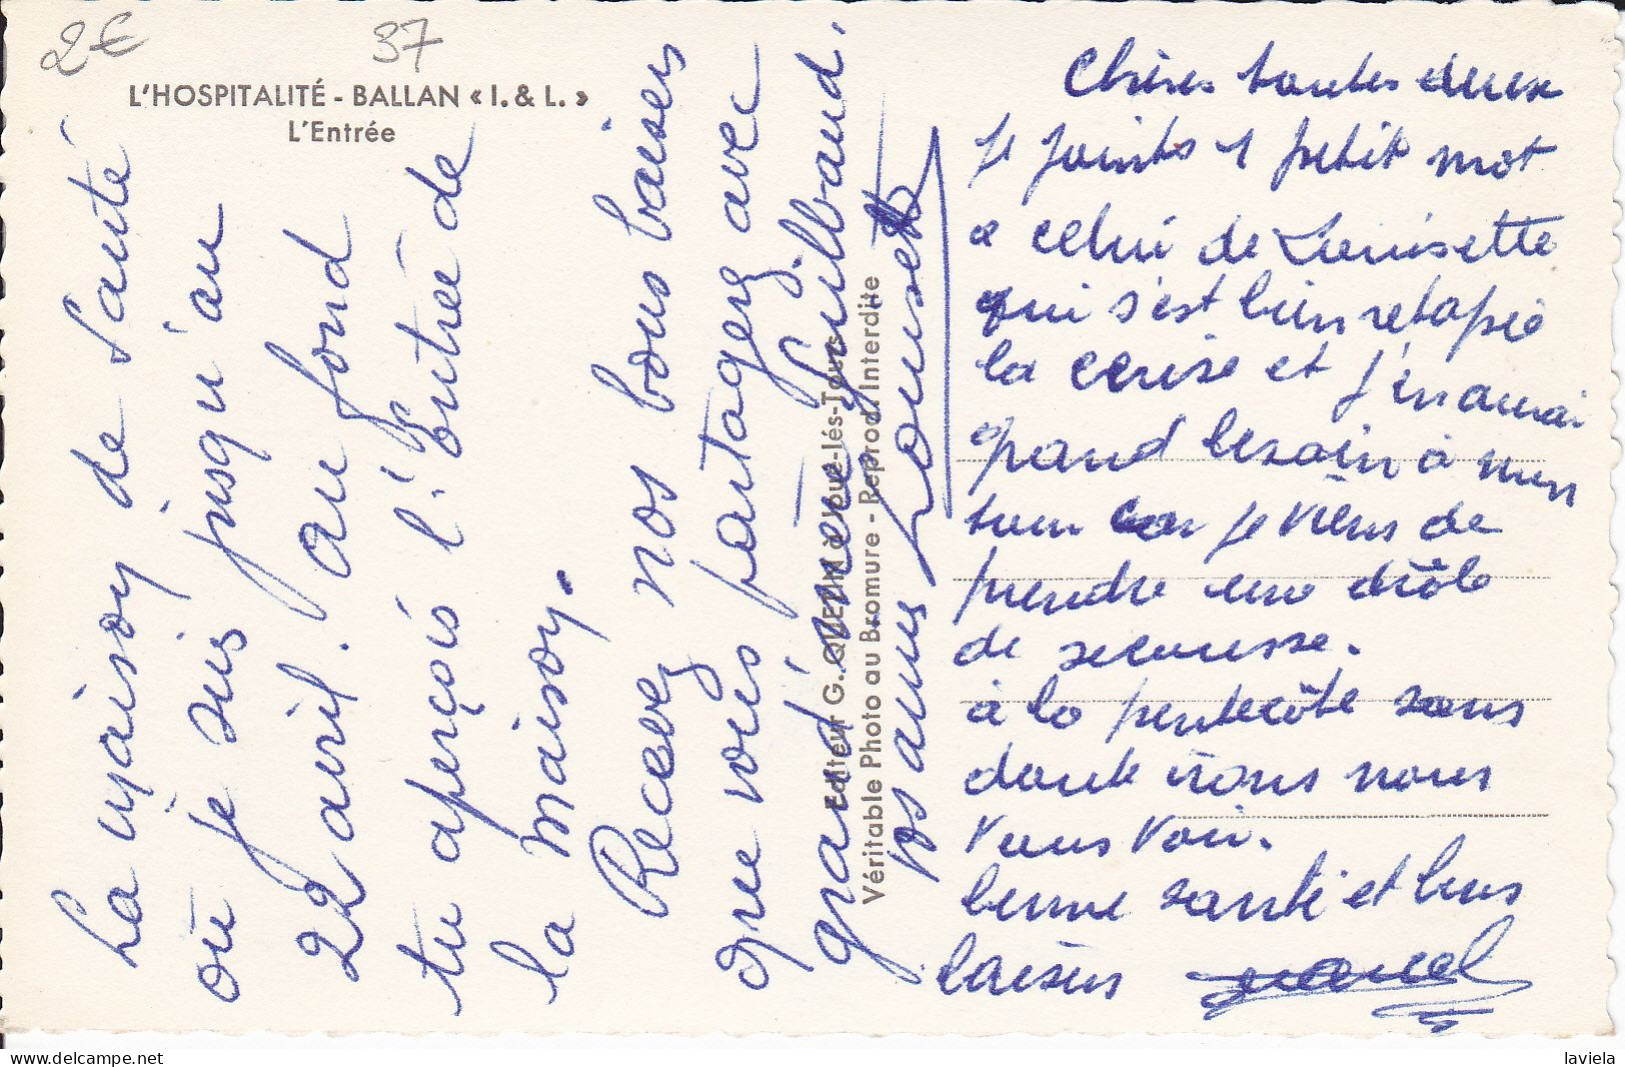 2€
37
L'HOSPITALITÉ - BALLAN « I. & L. »
L'Entrée
La maison de Santé
où je suis jusqu'au
22 avril. au fond
tu aperçois l'Entrée de
la maison.
Recevez nos bons baisers
que vous partagerez avec
grand'mère Guilbaud.
vos amis Louisette
Editeur G. QUEZIN à Joué-lés-Tours
Véritable Photo au Bromure - Reprod. Interdite
Chères toutes deux
je joints 1 petit mot
a celui de Louisette
qui s'est bien retapié
la cerise et j'en aurai
grand besoin à mon
tour car je viens de
prendre une drôle
de secousse.
à la pentecôte sans
doute irons nous
vous voir.
bonne santé et bons
baisers Marcel
laviela